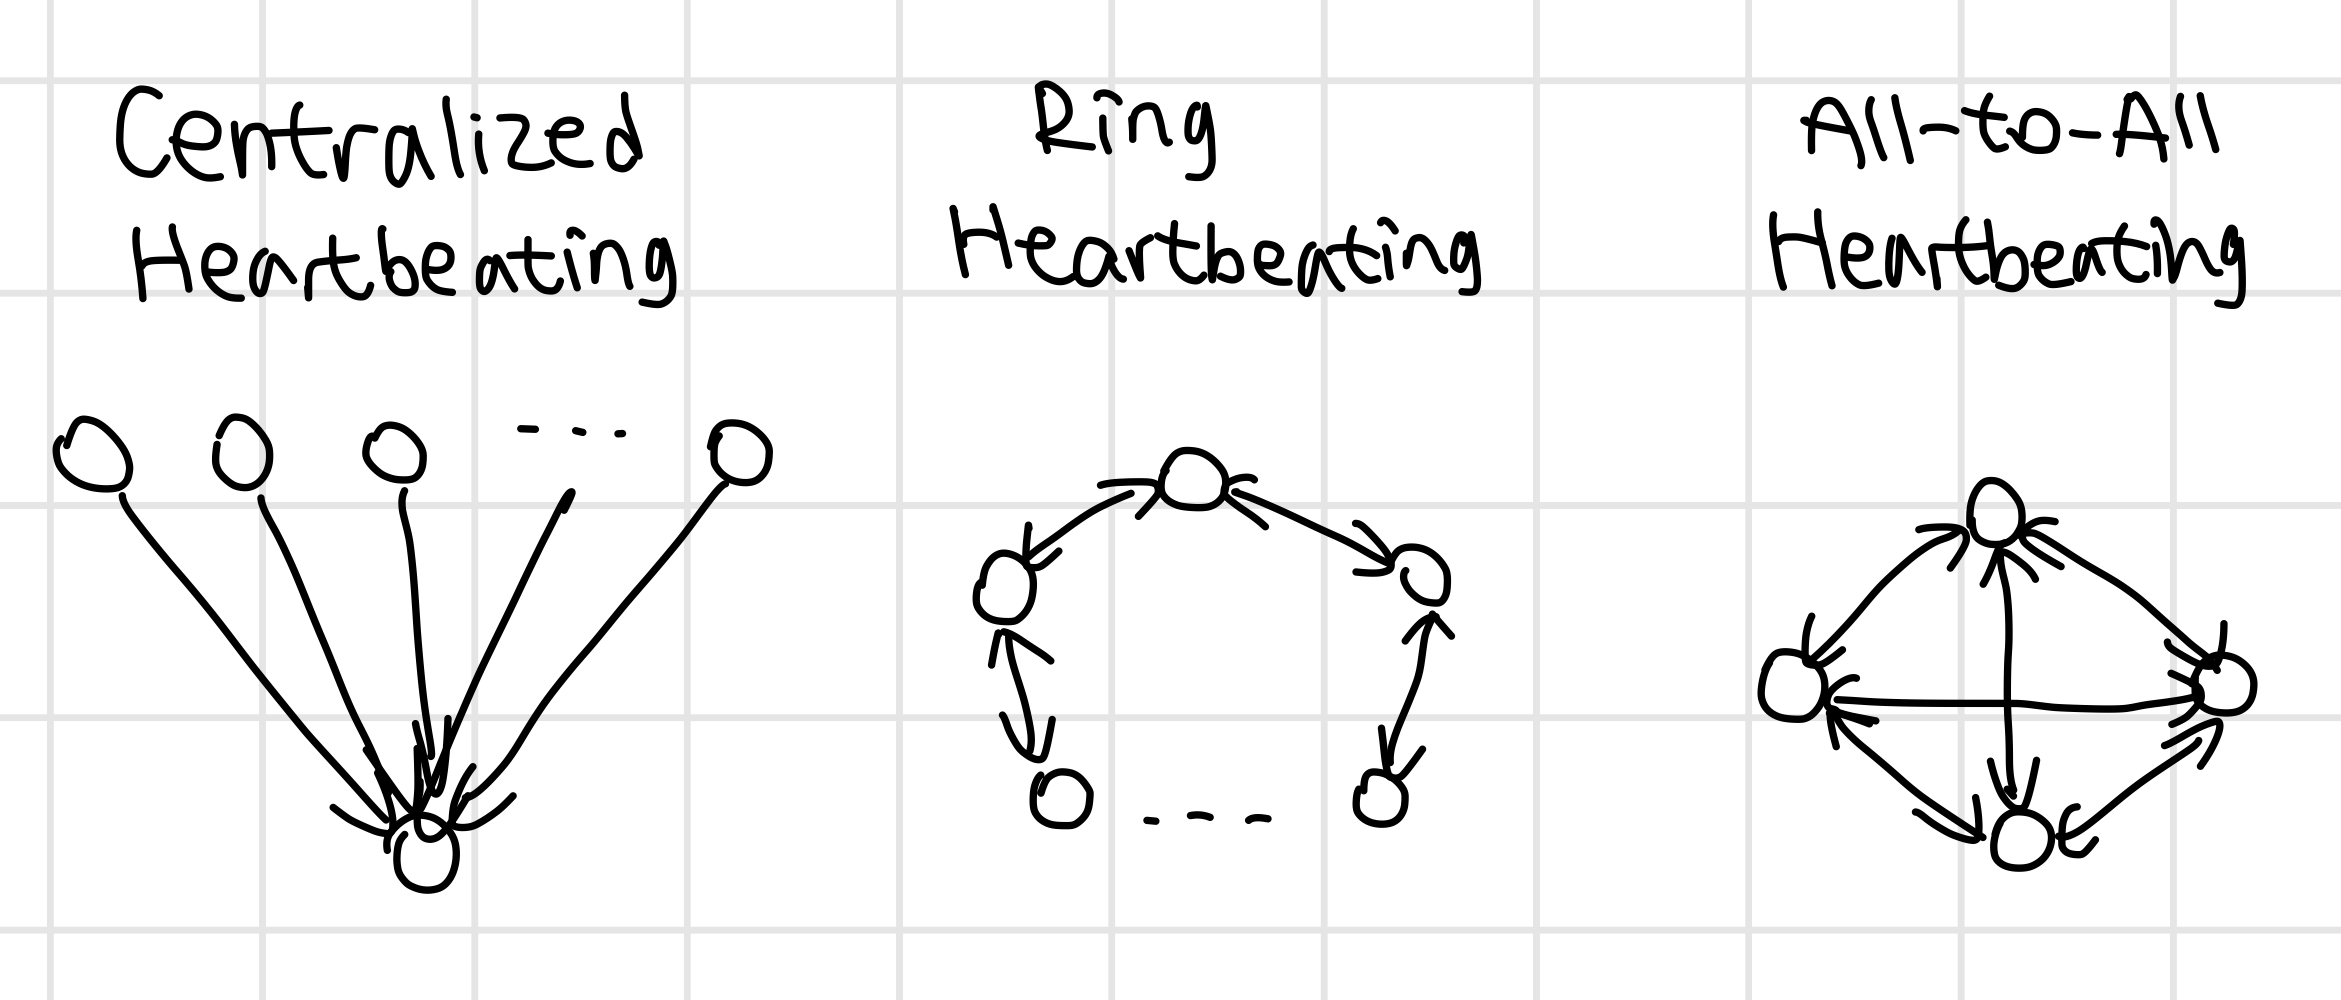 Centralized
Heartbeating
Ring
Heartbeating
All-to-All
Heartbeating